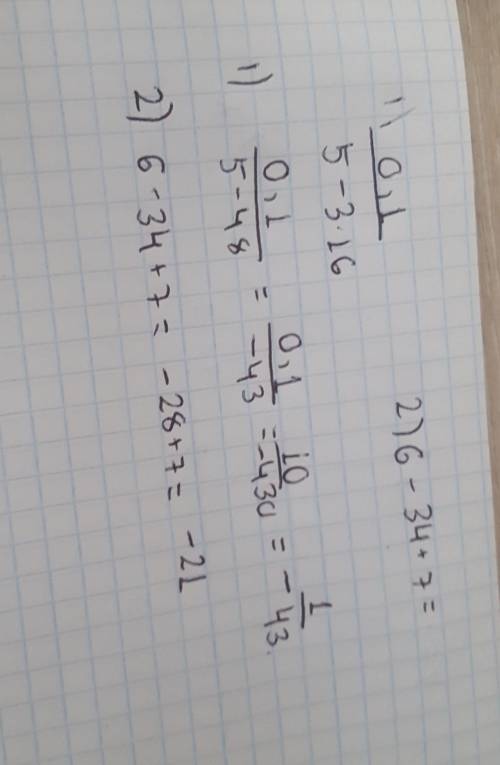 1) 0,1 / 5 - 3·16
2) 6 - 34 + 7 =
1) 0,1 / 5 - 48 = 0,1 / -43 = 10 / -430 = - 1 / 43.
2) 6 - 34 + 7 = -28 + 7 = -21